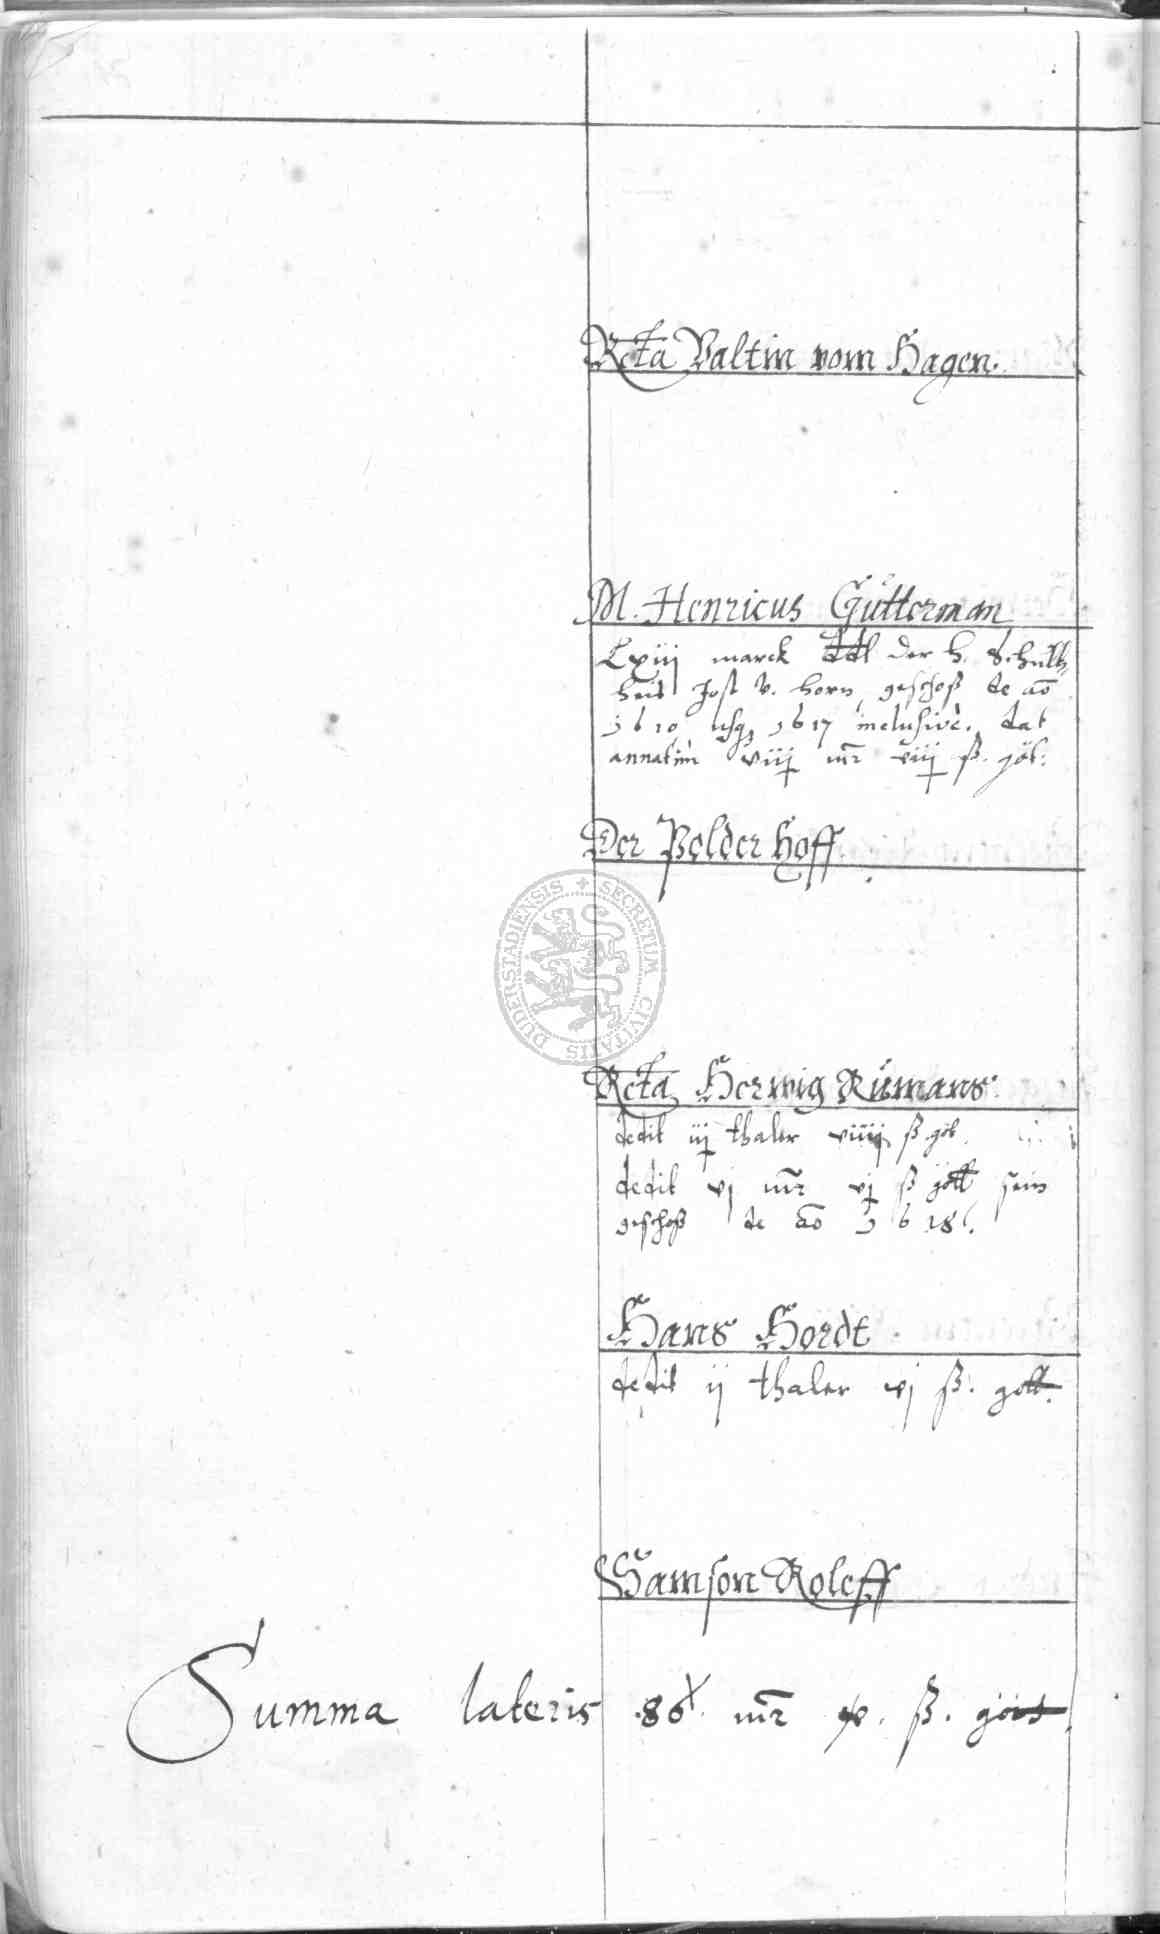 Rcta Valtin vom Hagen.
M. Henricus Gütterman
Lxiij marck ddt der h. Schult
heis Jost v. Horn geschoß de ao
1610 usq 1617 inclusivè. dat
annatim viij mr viij ß. göt.
Der Polder hoff
DUDERSTADIENSIS + SECRETUM CIVITATIS
Rcta Herwig Rümans
dedit iij thaler viiij ß göt
dedit vj mr vj ß gött sein
geschoß de ao 1618.
Hans Hordt
dedit ij thaler vj ß. gött.
Samson Roleff
Summa lateris mr ß. gött